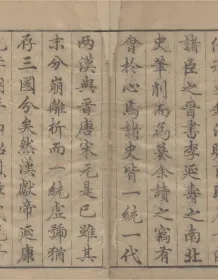 諸臣之晉書李延壽之南北
史筆削而爲纂余讀之竊有
會於心焉諸史皆一統一代
兩漢與晉唐宋元是已雖其
末分崩離折而一統虛號猶
存三國分矣然漢獻帝延康